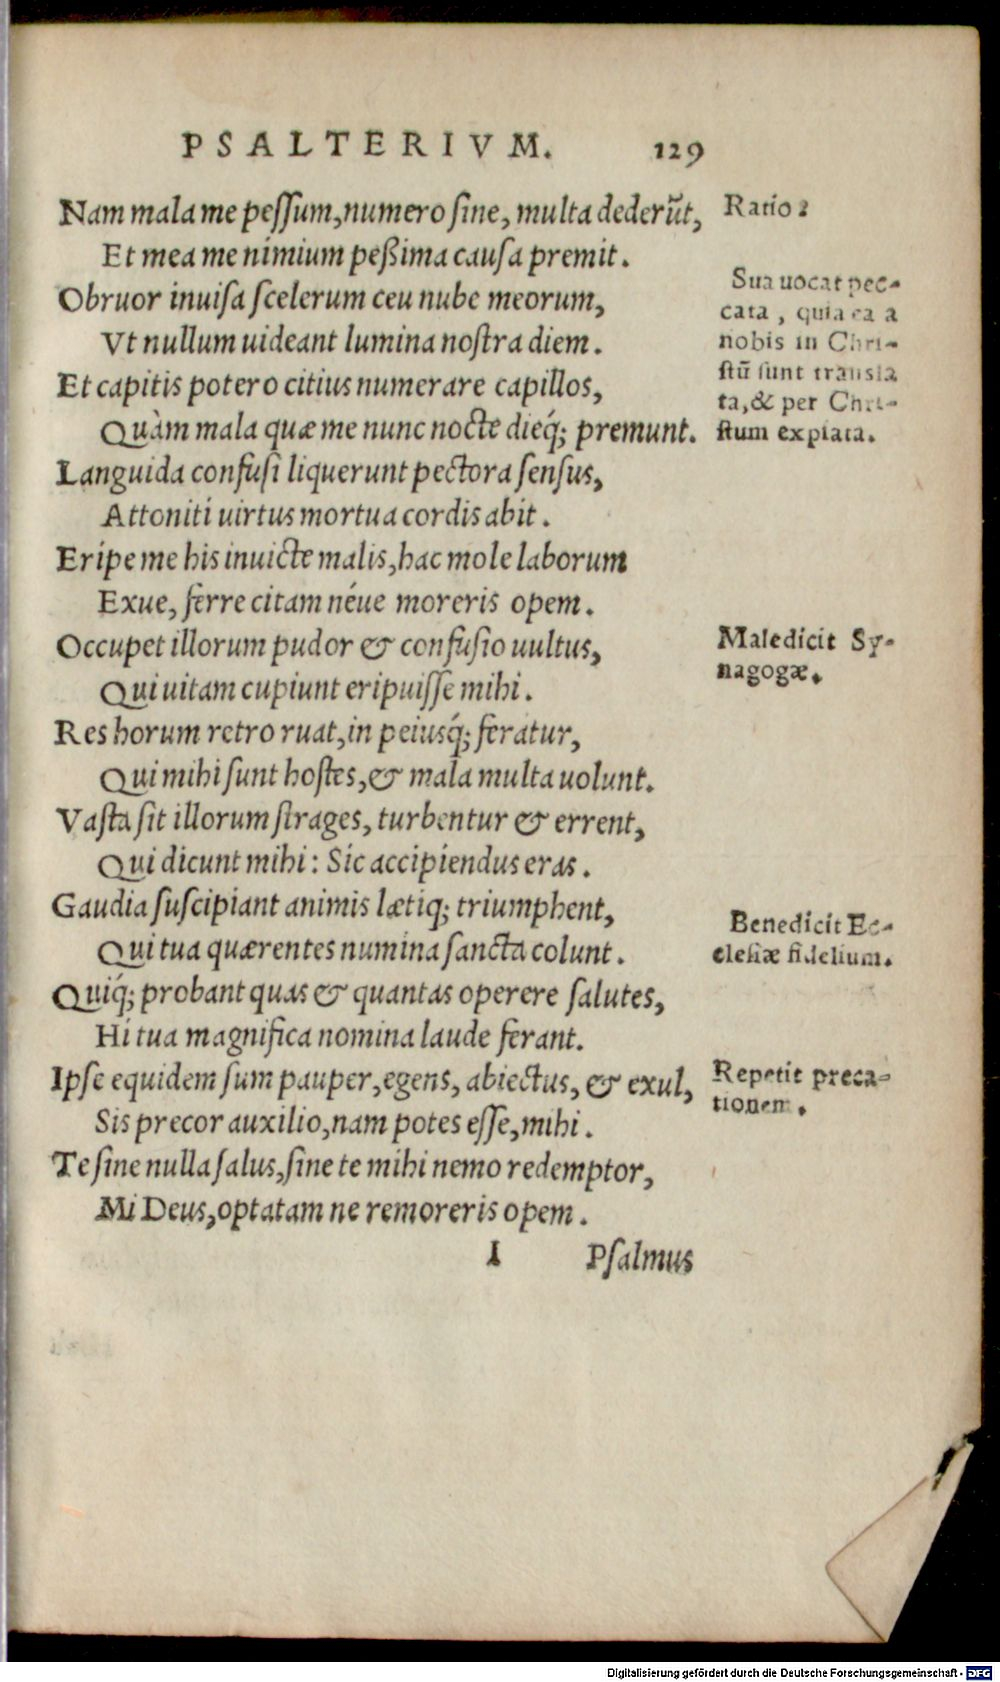 PSALTERIVM. 129
Nam mala me peſſum, numero ſine, multa dederũt,
Et mea me nimium peßima cauſa premit.
Obruor inuiſa ſcelerum ceu nube meorum,
Vt nullum uideant lumina noſtra diem.
Et capitis potero citius numerare capillos,
Quàm mala quæ me nunc nocte dieq́; premunt.
Languida confuſi liquerunt pectora ſenſus,
Attoniti uirtus mortua cordis abit.
Eripe me his inuicte malis, hac mole laborum
Exue, ferre citam néue moreris opem.
Occupet illorum pudor & confuſio uultus,
Qui uitam cupiunt eripuiſſe mihi.
Res horum retro ruat, in peiusq́; feratur,
Qui mihi ſunt hoſtes, & mala multa uolunt.
Vaſta ſit illorum ſtrages, turbentur & errent,
Qui dicunt mihi: Sic accipiendus eras.
Gaudia ſuſcipiant animis lætiq; triumphent,
Qui tua quærentes numina ſancta colunt.
Quiq́; probant quas & quantas operere ſalutes,
Hi tua magnifica nomina laude ferant.
Ipſe equidem ſum pauper, egens, abiectus, & exul,
Sis precor auxilio, nam potes eſſe, mihi.
Te ſine nulla ſalus, ſine te mihi nemo redemptor,
Mi Deus, optatam ne remoreris opem.
I Pſalmus
Ratio 2
Sua uocat pec-
cata, quia ea a
nobis in Chri-
ſtũ ſunt transla
ta, & per Chri-
ſtum expiata.
Maledicit Sy-
nagogæ.
Benedicit Ec-
cleſiæ fidelium.
Repetit preca-
tionem.
Digitalisierung gefördert durch die Deutsche Forschungsgemeinschaft - DFG